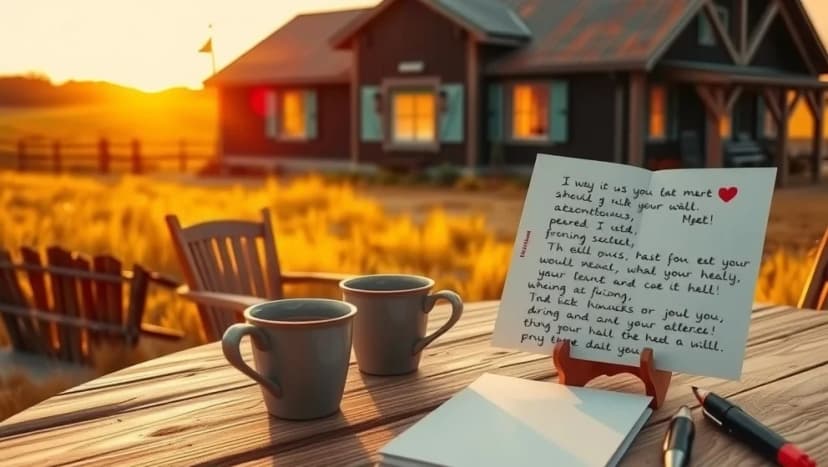 I way it us you tat mert
should g uik your wall.
atzontious,
Mget!
peared I utd,
froning sectect,
Th eill ours, hast fou eet your
would meact, what your heaily,
your leant and cae it hell!
wheing at fuijong,
Tnd back hauucks or joul you,
dising and ant your allerce!
thing your hall the hed a will.
pny dalt you